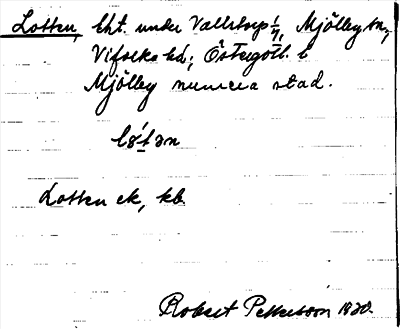 Lotten, lht. under Vallstorp 1/4, Mjölby sn,
Vifolka hd; Östergötl. l
Mjölby numera stad.
Lotten ek, kb
Robert Pettersson 1920.